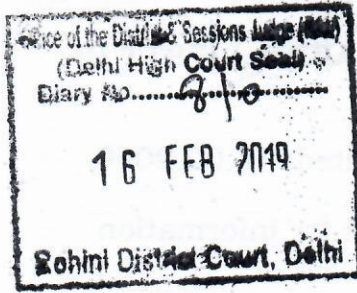 Office of the District & Sessions Judge
(Delhi High Court Seal)
Diary No.............810..........
16 FEB 2019
Rohini District Court, Delhi